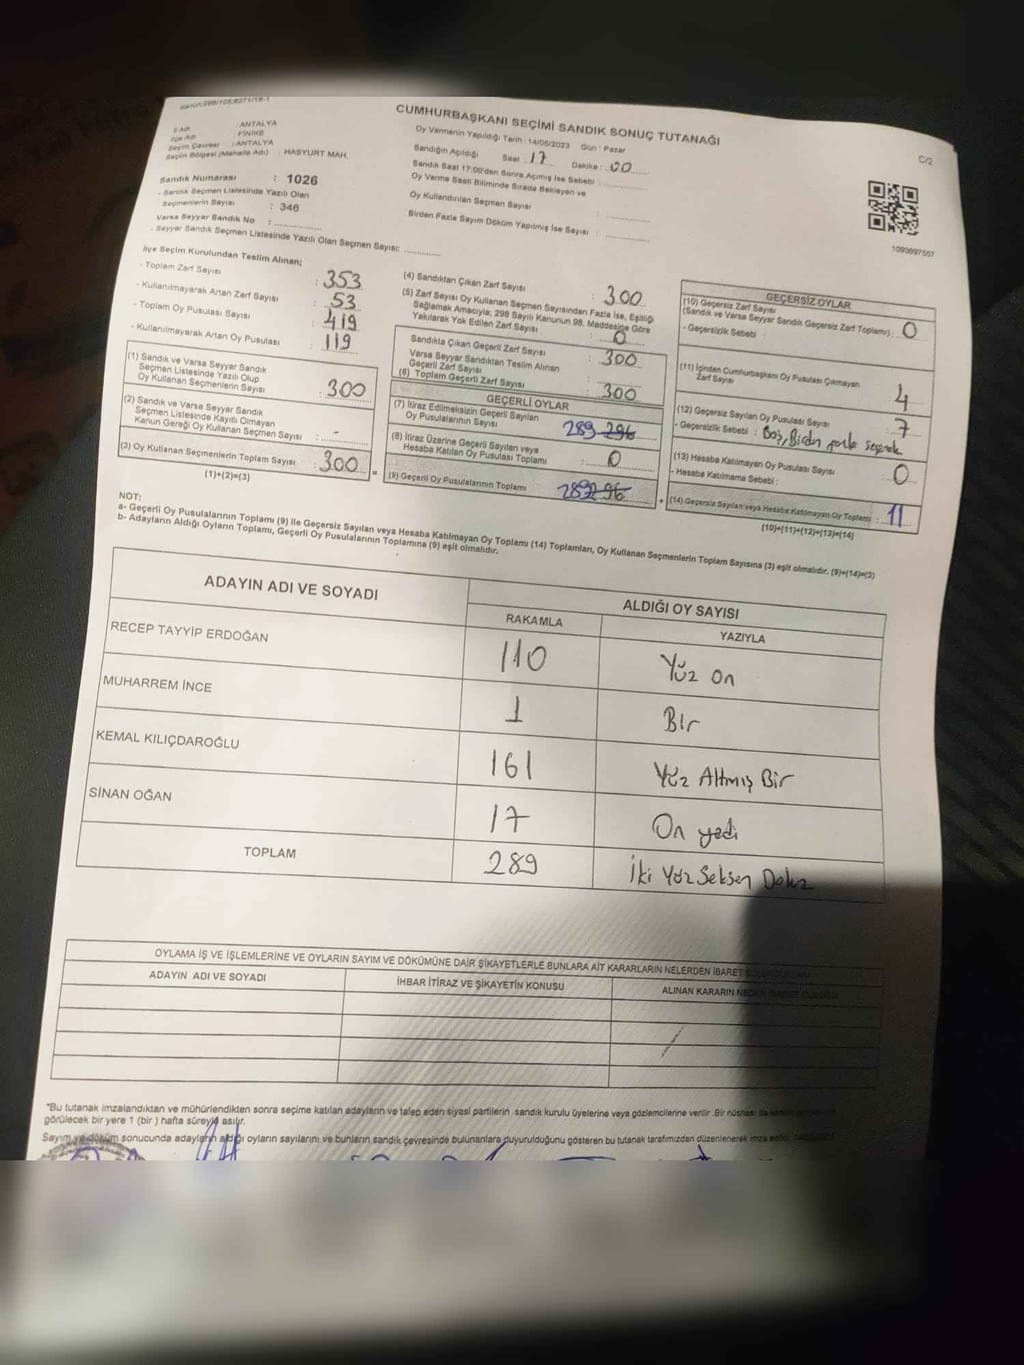 Kanun:298/105;6271/18-1
CUMHURBAŞKANI SEÇİMİ SANDIK SONUÇ TUTANAĞI
C/2
İl Adı : ANTALYA
İlçe Adı : FİNİKE
Seçim Çevresi : ANTALYA
Seçim Bölgesi (Mahalle Adı) : HASYURT MAH.
Sandık Numarası : 1026
- Sandık Seçmen Listesinde Yazılı Olan
Seçmenlerin Sayısı : 346
Varsa Seyyar Sandık No :
- Seyyar Sandık Seçmen Listesinde Yazılı Olan Seçmen Sayısı:
Oy Vermenin Yapıldığı Tarih : 14/05/2023 Gün : Pazar
Sandığın Açıldığı Saat : 17 Dakika : 00
Sandık Saat 17:00'den Sonra Açılmış İse Sebebi :
Oy Verme Saati Bitiminde Sırada Bekleyen ve
Oy Kullandırılan Seçmen Sayısı :
Birden Fazla Sayım Döküm Yapılmış İse Sayısı :
1093697557
İlçe Seçim Kurulundan Teslim Alınan;
- Toplam Zarf Sayısı : 353
- Kullanılmayarak Artan Zarf Sayısı : 53
- Toplam Oy Pusulası Sayısı : 419
- Kullanılmayarak Artan Oy Pusulası : 119
(1) Sandık ve Varsa Seyyar Sandık
Seçmen Listesinde Yazılı Olup
Oy Kullanan Seçmenlerin Sayısı : 300
(2) Sandık ve Varsa Seyyar Sandık
Seçmen Listesinde Kayıtlı Olmayan
Kanun Gereği Oy Kullanan Seçmen Sayısı : -
(3) Oy Kullanan Seçmenlerin Toplam Sayısı : 300
(1)+(2)=(3)
(4) Sandıktan Çıkan Zarf Sayısı : 300
(5) Zarf Sayısı Oy Kullanan Seçmen Sayısından Fazla İse, Eşitliği
Sağlamak Amacıyla; 298 Sayılı Kanunun 98. Maddesine Göre
Yakılarak Yok Edilen Zarf Sayısı : 0
Sandıkta Çıkan Geçerli Zarf Sayısı : 300
Varsa Seyyar Sandıktan Teslim Alınan
Geçerli Zarf Sayısı :
(6) Toplam Geçerli Zarf Sayısı : 300
GEÇERLİ OYLAR
(7) İtiraz Edilmeksizin Geçerli Sayılan
Oy Pusulalarının Sayısı : 289 296
(8) İtiraz Üzerine Geçerli Sayılan veya
Hesaba Katılan Oy Pusulası Toplamı : 0
(9) Geçerli Oy Pusulalarının Toplamı : 289 296
=
+
GEÇERSİZ OYLAR
(10) Geçersiz Zarf Sayısı
(Sandık ve Varsa Seyyar Sandık Geçersiz Zarf Toplamı) : 0
- Geçersizlik Sebebi :
(11) İçinden Cumhurbaşkanı Oy Pusulası Çıkmayan
Zarf Sayısı : 4
(12) Geçersiz Sayılan Oy Pusulası Sayısı : 7
- Geçersizlik Sebebi : Boş, Birden fazla seçenek
(13) Hesaba Katılmayan Oy Pusulası Sayısı : 0
- Hesaba Katılmama Sebebi :
(14) Geçersiz Sayılan veya Hesaba Katılmayan Oy Toplamı : 11
(10)+(11)+(12)+(13)=(14)
NOT:
a- Geçerli Oy Pusulalarının Toplamı (9) ile Geçersiz Sayılan veya Hesaba Katılmayan Oy Toplamı (14) Toplamları, Oy Kullanan Seçmenlerin Toplam Sayısına (3) eşit olmalıdır. (9)+(14)=(3)
b- Adayların Aldığı Oyların Toplamı, Geçerli Oy Pusulalarının Toplamına (9) eşit olmalıdır.
ADAYIN ADI VE SOYADI
ALDIĞI OY SAYISI
RAKAMLA YAZIYLA
RECEP TAYYİP ERDOĞAN 110 Yüz on
MUHARREM İNCE 1 Bir
KEMAL KILIÇDAROĞLU 161 Yüz Altmış Bir
SİNAN OĞAN 17 On yedi
TOPLAM 289 İki Yüz Seksen Dokuz
OYLAMA İŞ VE İŞLEMLERİNE VE OYLARIN SAYIM VE DÖKÜMÜNE DAİR ŞİKAYETLERLE BUNLARA AİT KARARLARIN NELERDEN İBARET
ADAYIN ADI VE SOYADI İHBAR İTİRAZ VE ŞİKAYETİN KONUSU ALINAN KARARIN NEDEN İBARET OLDUĞU
*Bu tutanak imzalandıktan ve mühürlendikten sonra seçime katılan adayların ve talep eden siyasi partilerin sandık kurulu üyelerine veya gözlemcilerine verilir. Bir nüshası da
görülecek bir yere 1 (bir) hafta süreyle asılır.
Sayım ve döküm sonucunda adayların aldığı oyların sayılarını ve bunların sandık çevresinde bulunanlara duyurulduğunu gösteren bu tutanak tarafımızdan düzenlenerek imza edildi.